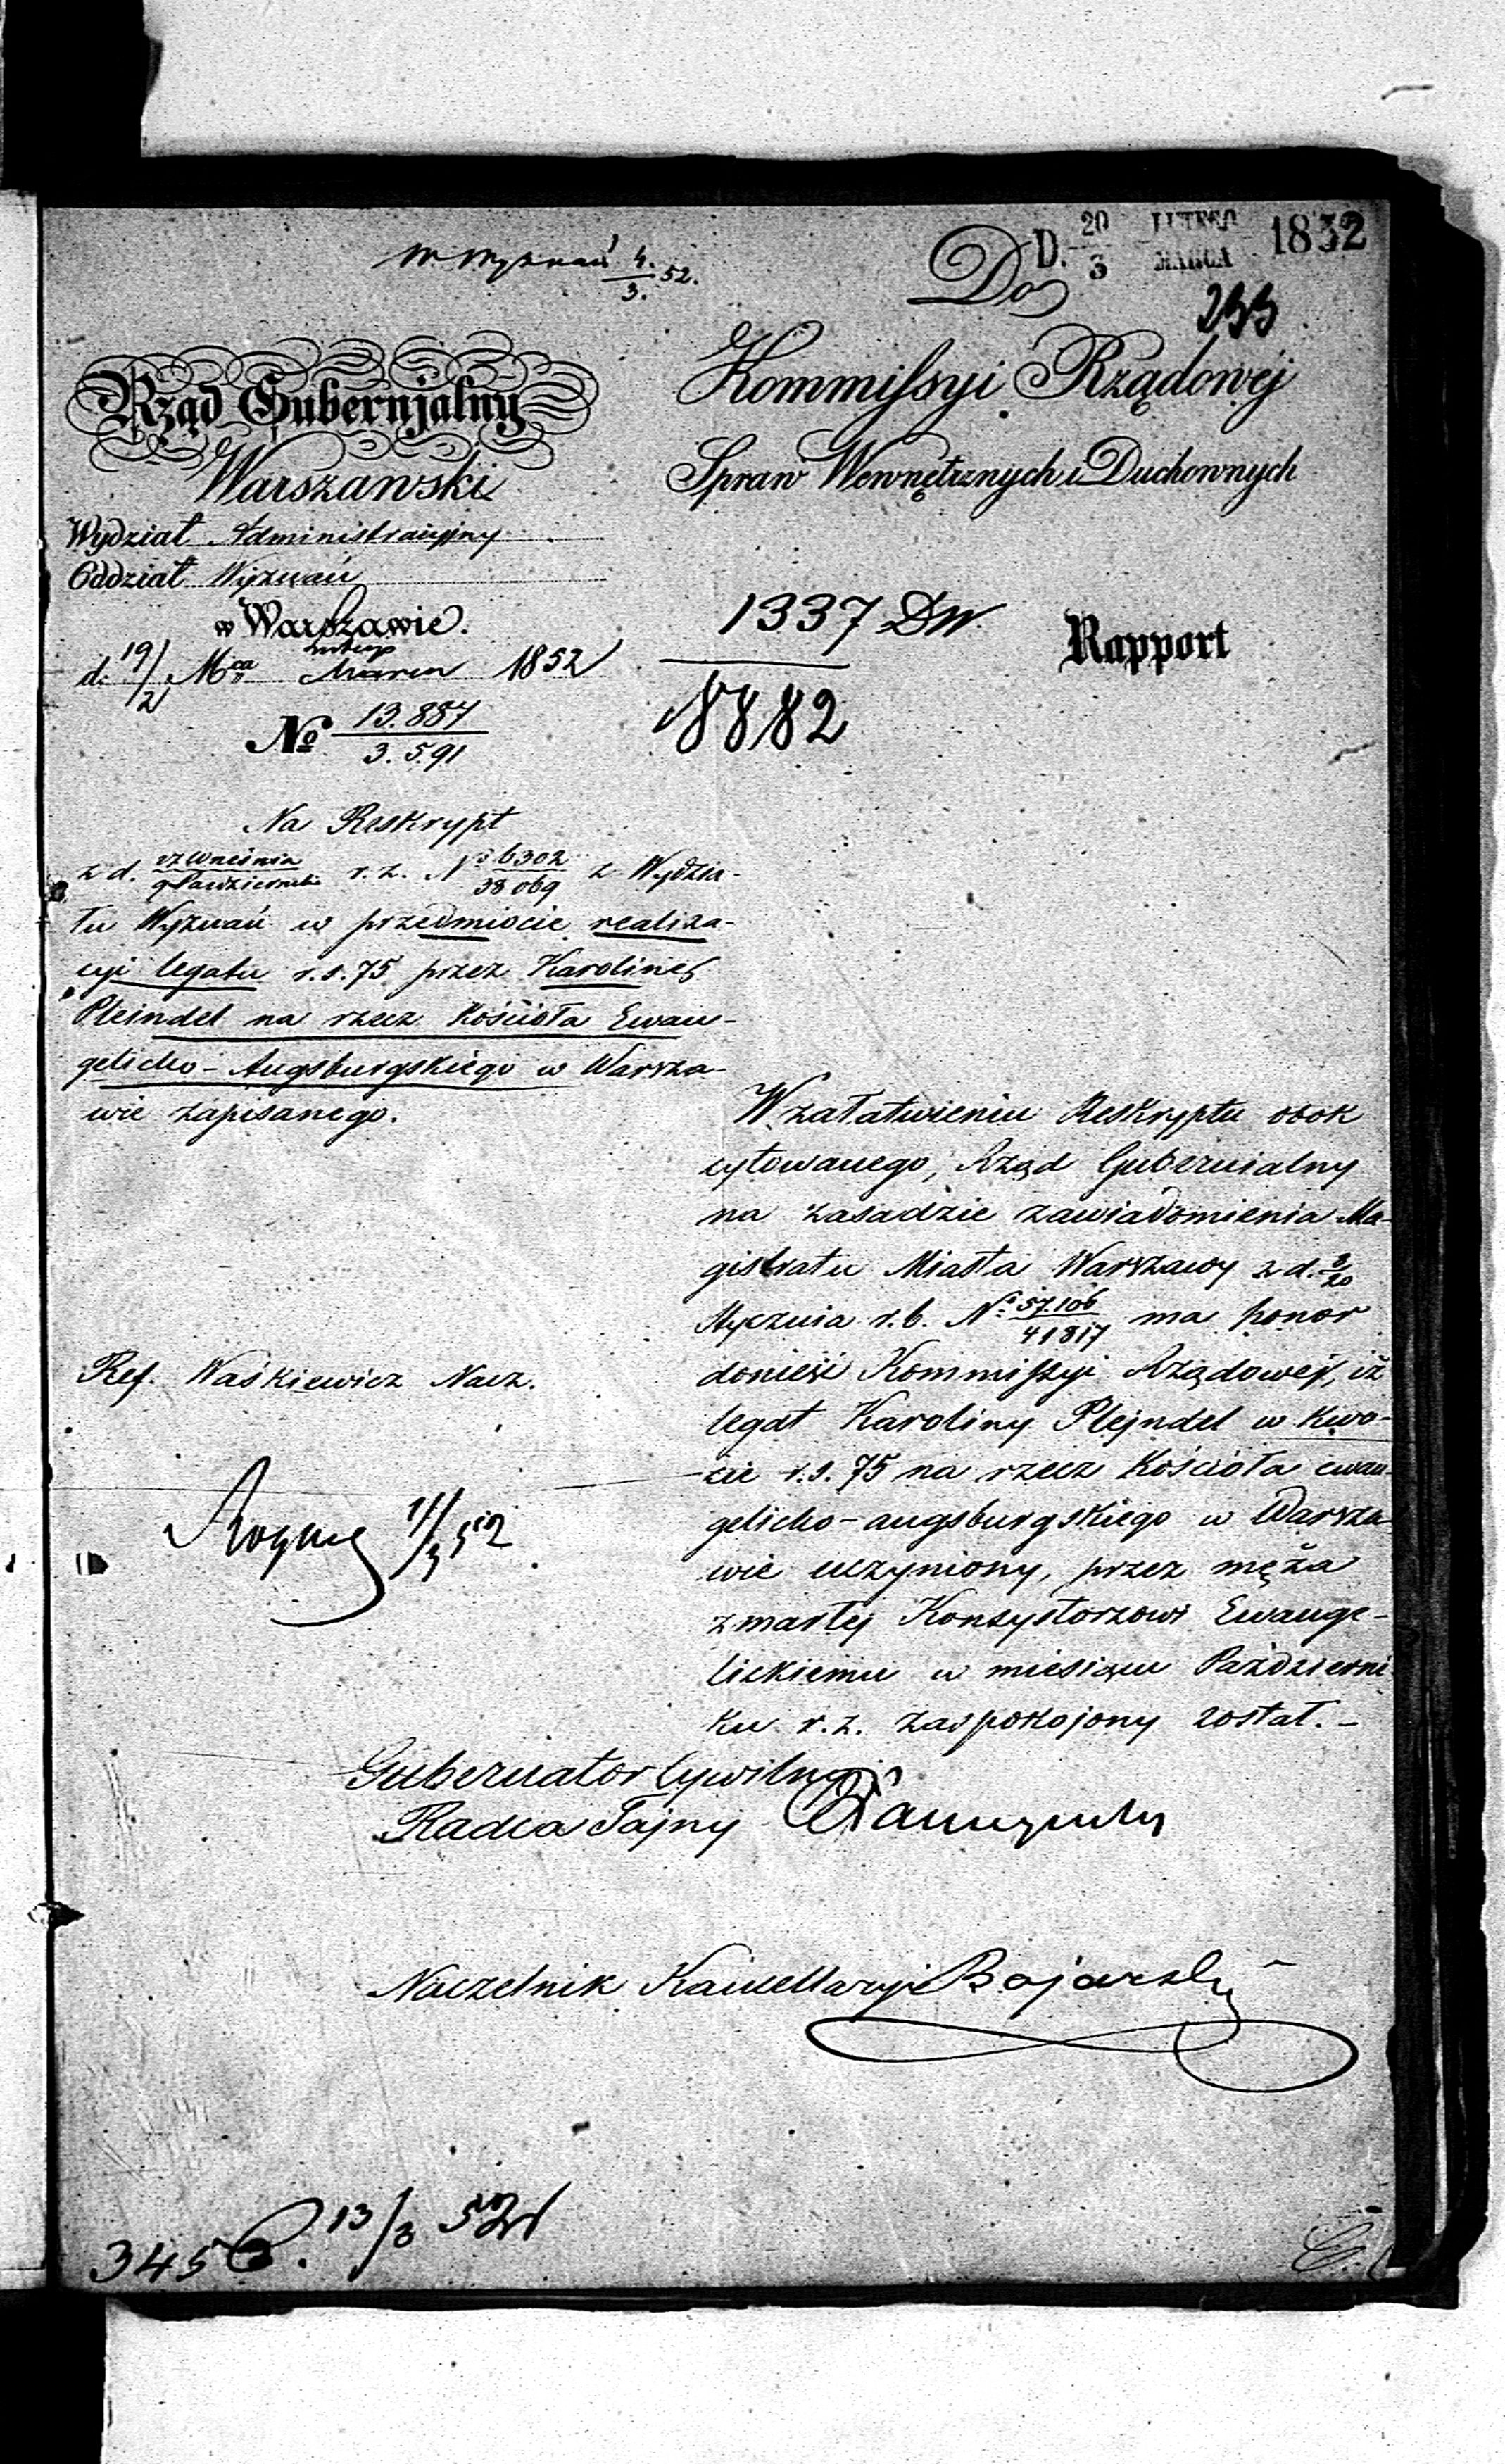 W. Wyznań 4./3. 52.
D. 20/3 LUTEGO/MARCA 1852
Do
233
Rząd Gubernjalny
Warszawski
Kommissyi Rządowéj
Spraw Wewnętrznych i Duchownych
Wydział Administracyjny
Oddział Wyznań
w Warszawie.
d. 19/2 Mca Lutego/Marca 1852
No 13.887/3.591
1337 DW
8882
Rapport
Na Reskrypt
z d. 27 Września/9 Października r. z. No 6302/38069 z Wydzia-
łu Wyznań w przedmiocie realiza-
cyi legatu r.s. 75 przez Karolinę
Pleindel na rzecz Kościoła Ewan-
gelicko-Augsburgskiego w Warsza-
wie zapisanego.
W załatwieniu Reskryptu obok
cytowanego, Rząd Gubernialny
na zasadzie zawiadomienia Ma-
gistratu Miasta Warszawy z d. 8/20
Stycznia r. b. No 57.106/41817 ma honor
donieść Kommissyi Rządowéj, iż
legat Karoliny Plejndel w kwo-
cie r.s. 75 na rzecz Kościoła ewan-
gelicko-augsburgskiego w Warsza-
wie uczyniony, przez męża
zmarłej Konsystorzowi Ewange-
lickiemu w miesiącu Październi-
ku r. z. zaspokojony został.-
Ref. Waśkiewicz Nacz.
11/3 52
Gubernator Cywilny
Radca Tajny
Naczelnik Kancellaryi Bojarski
345 13/3 52